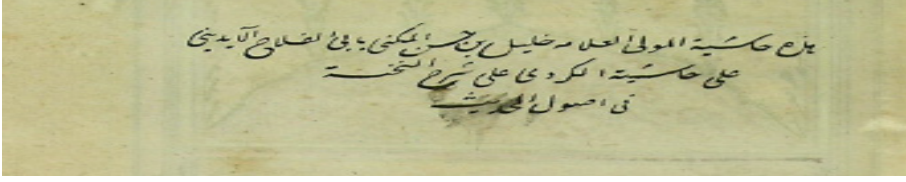 هذه حاشية المولى العلامه خليل بن حسن المكنى بابى الفلاح الآيدينى
على حاشية الكردى على شرح النخبة
فى اصول الحديث